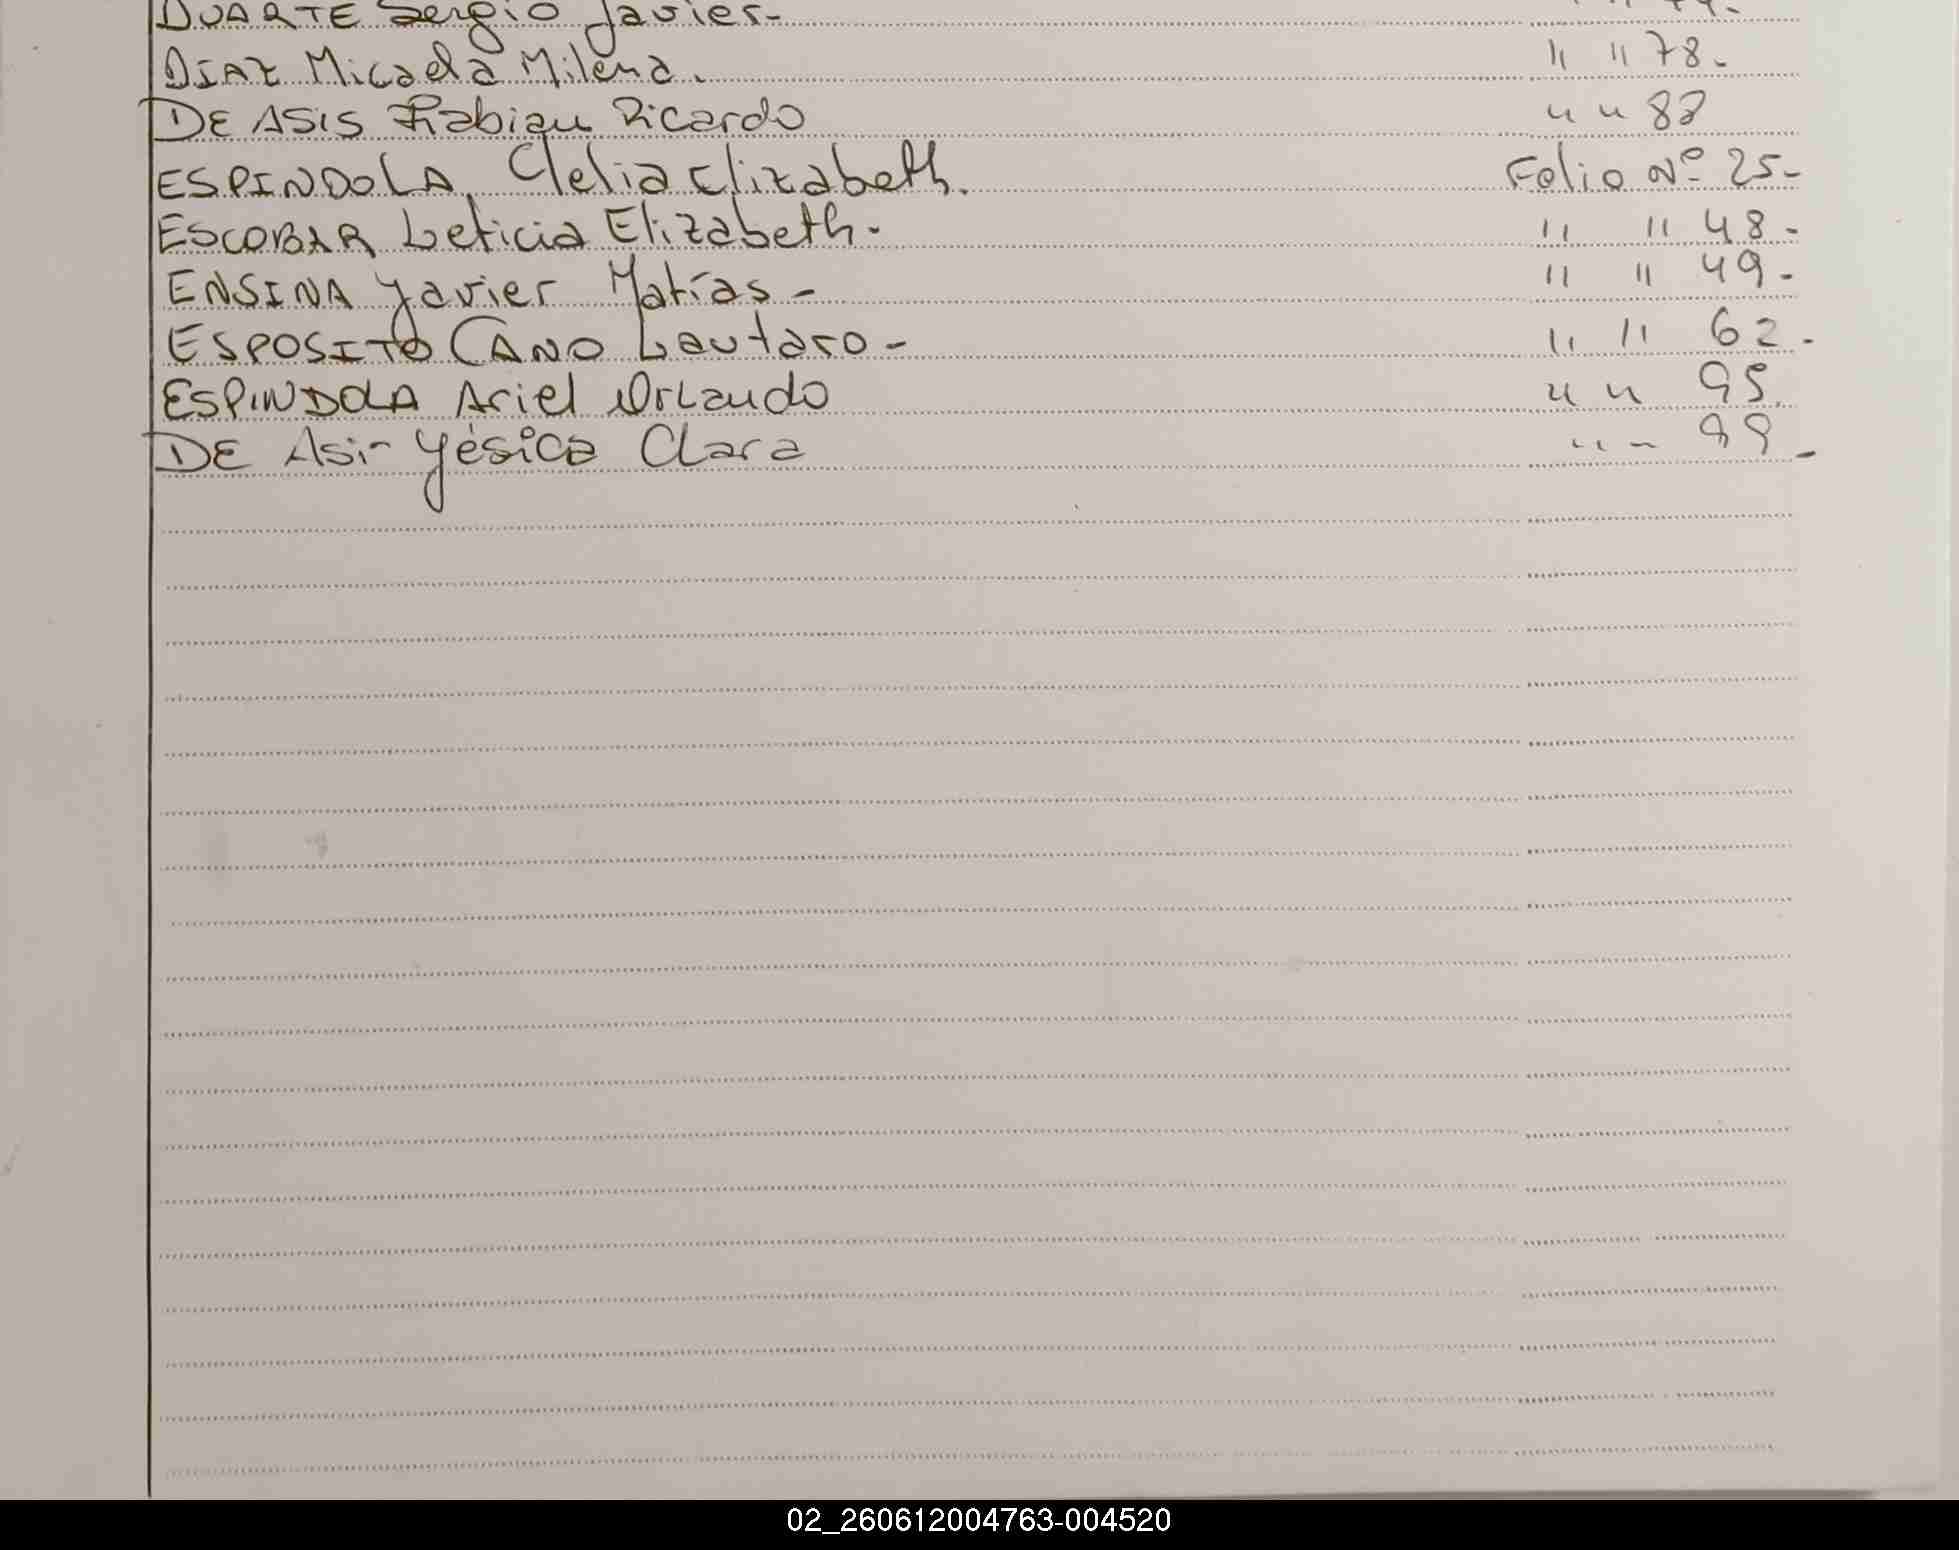 DUARTE Sergio Javier-
DIAZ Micaela Milena. " " 78.-
DE ASIS Fabian Ricardo " " 88
ESPINDOLA, Clelia Elizabeth. Folio Nº 25-
ESCOBAR Leticia Elizabeth. " " 48-
ENSINA Javier Matías - " " 49-
ESPOSITO CANO Lautaro - " " 62-
ESPINDOLA Ariel Orlando " " 95.
DE Asis Yésica Clara " " 99-
02_260612004763-004520